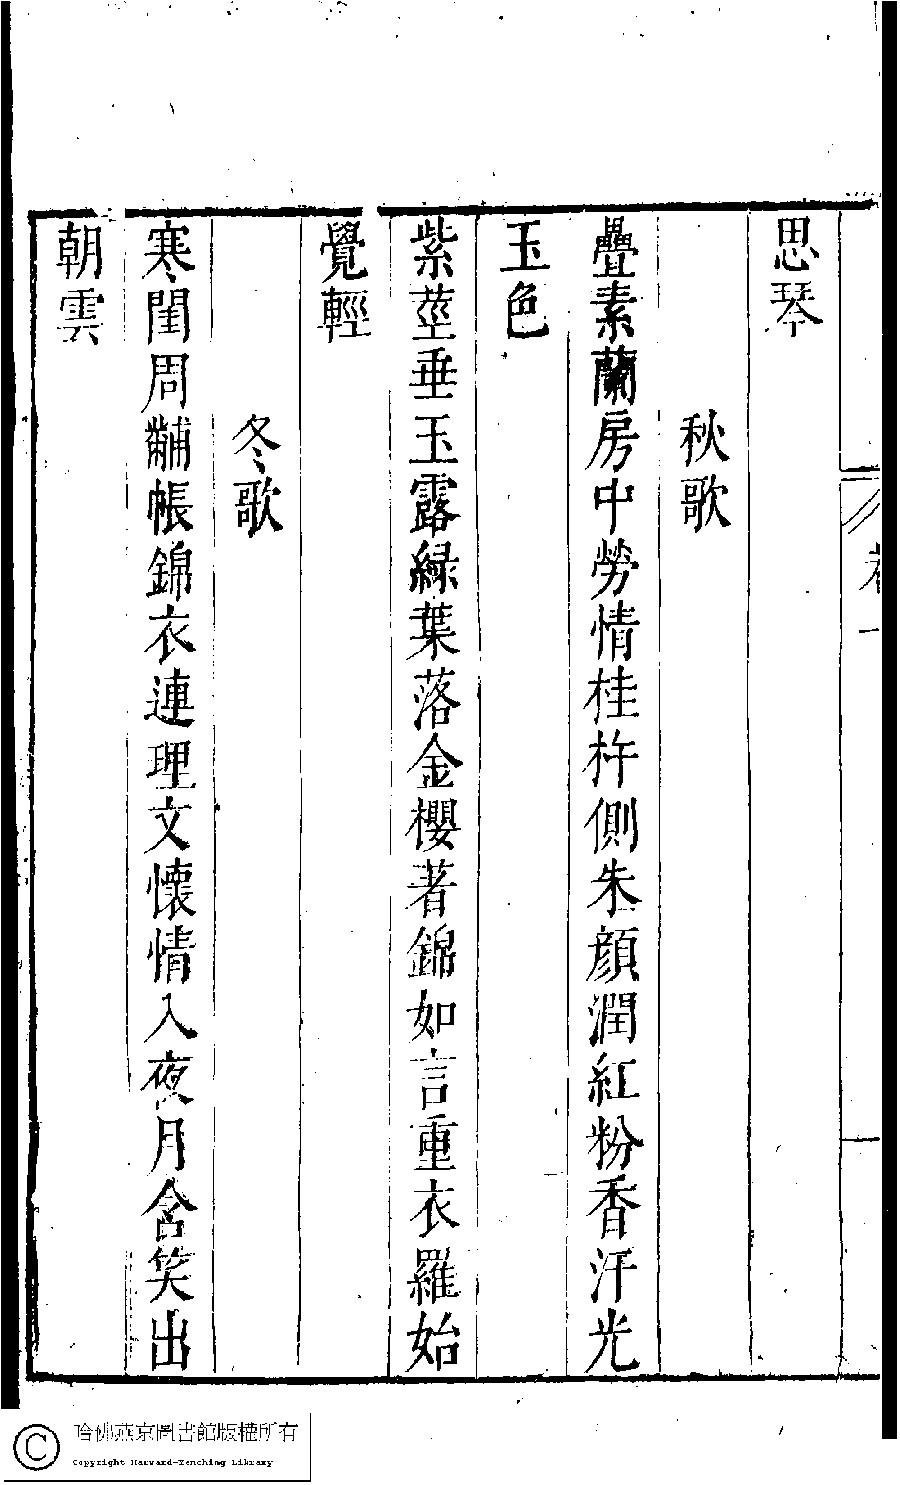 卷一
思琴
秋歌
疊素蘭房中勞情桂杵側朱顏潤紅粉香汗光
玉色
紫莖垂玉露綠葉落金櫻著錦如言重衣羅始
覺輕
冬歌
寒閨周黼帳錦衣連理文懷情入夜月含笑出
朝雲
哈佛燕京圖書館版權所有
Copyright Harvard-Yenching Library